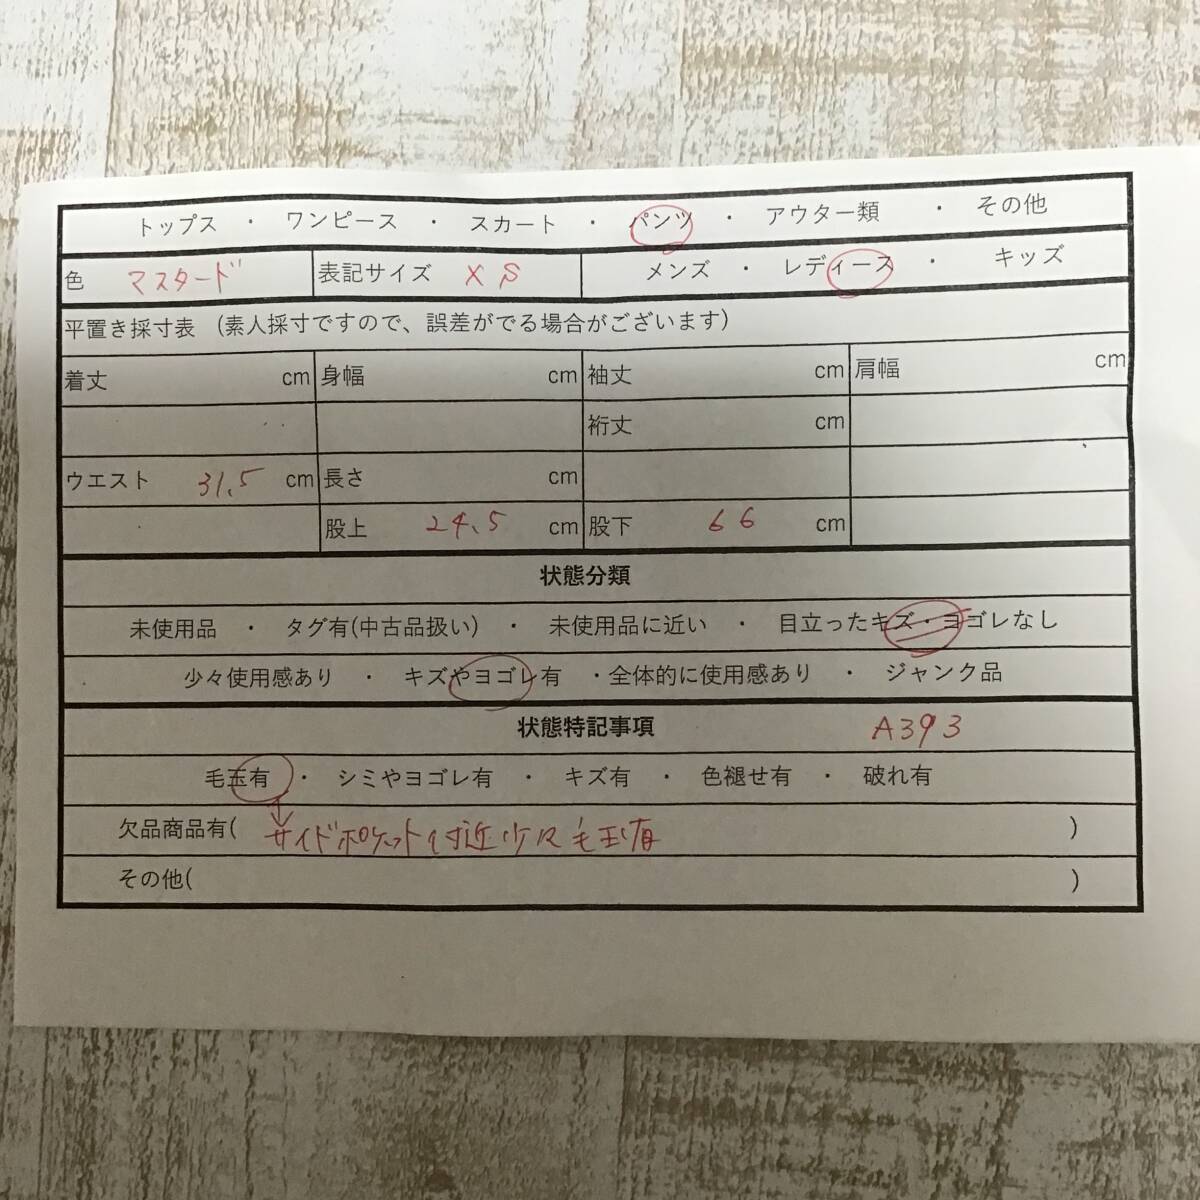 トップス ・ ワンピース ・ スカート ・ パンツ ・ アウター類 ・ その他
色 マスタード 表記サイズ XS メンズ ・ レディース ・ キッズ
平置き採寸表 (素人採寸ですので、誤差がでる場合がございます)
着丈 cm 身幅 cm 袖丈 cm 肩幅 cm
裄丈 cm
ウエスト 31.5 cm 長さ cm
股上 24.5 cm 股下 66 cm
状態分類
未使用品 ・ タグ有(中古品扱い) ・ 未使用品に近い ・ 目立ったキズ・ヨゴレなし
少々使用感あり ・ キズやヨゴレ有 ・全体的に使用感あり ・ ジャンク品
状態特記事項 A393
毛玉有 ・ シミやヨゴレ有 ・ キズ有 ・ 色褪せ有 ・ 破れ有
欠品商品有( サイドポケット付近少々毛玉有 )
その他( )